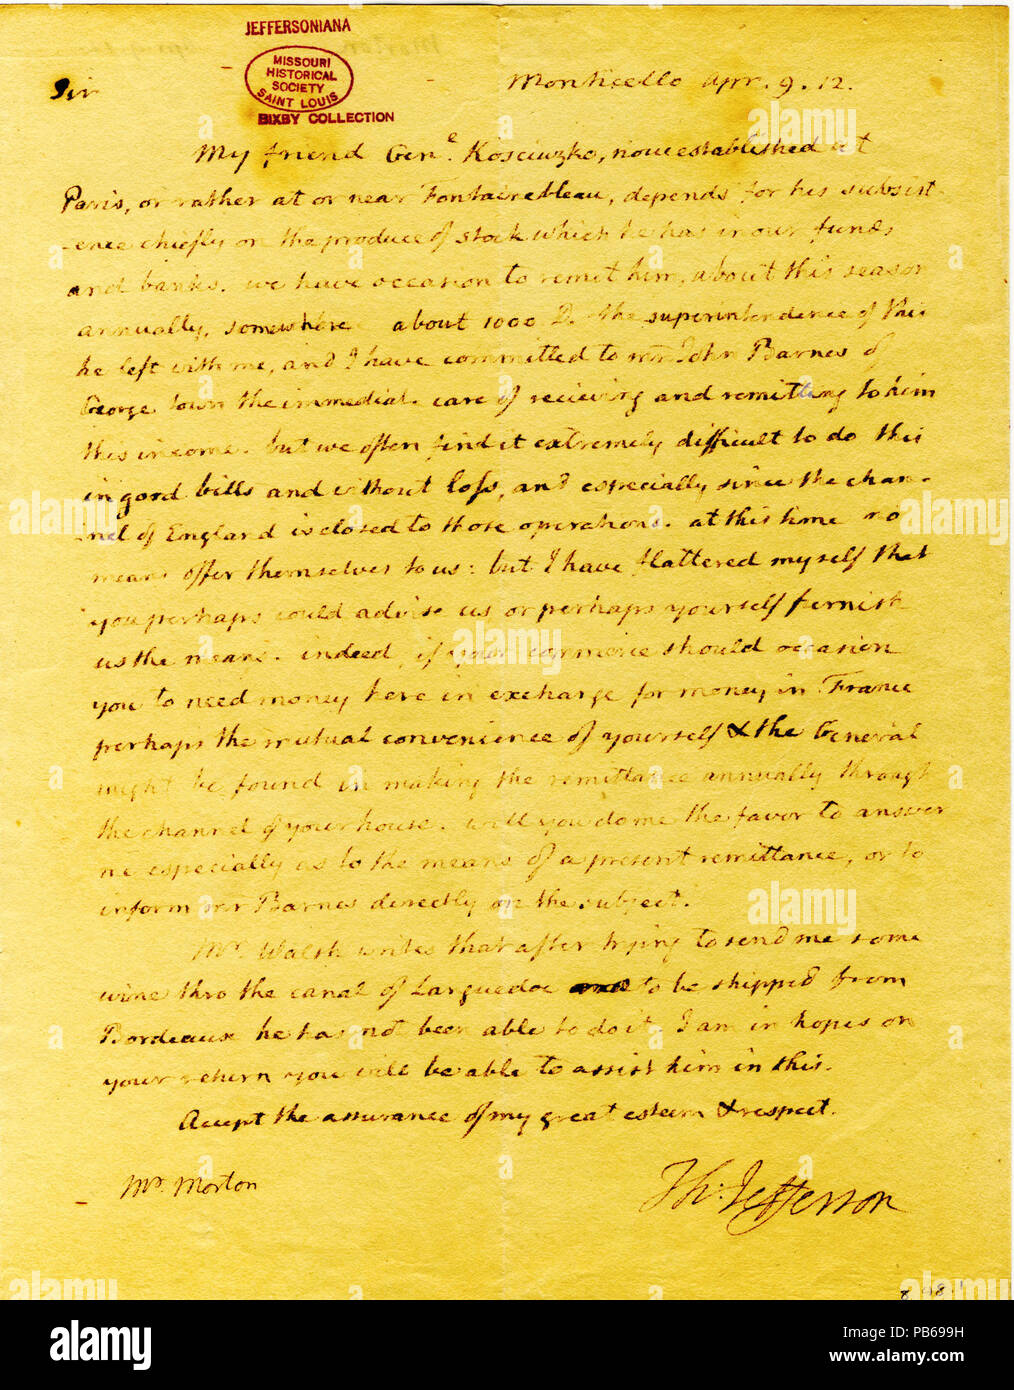 JEFFERSONIANA
MISSOURI
HISTORICAL
SOCIETY
SAINT LOUIS
BIXBY COLLECTION
Sir
Monticello Apr. 9. 12.
My friend Gen^e. Kosciuzko, now established at
Paris, or rather at or near Fontainebleau, depends for his subsist-
-ence chiefly on the produce of stock which he has in our funds
and banks. we have occasion to remit him, about this season
annually, somewhere about 1000 D. the superintendence of this
he left with me, and I have committed to mr John Barnes of
George town the immediate care of recieving and remitting to him
this income. but we often find it extremely difficult to do this
in good bills and without loss, and especially since the chan-
nel of England is closed to those operations. at this time no
means offer themselves to us: but I have flattered myself that
you perhaps could advise us or perhaps yourself furnish
us the means. indeed, if your commerce should occasion
you to need money here in exchange for money in France
perhaps the mutual convenience of yourself & the General
might be found in making the remittance annually through
the channel of your house. will you do me the favor to answer
me especially as to the means of a present remittance, or to
inform mr Barnes directly on the subject.
Mr. Walsh writes that after trying to send me some
wine thro the canal of Languedoc to be shipped from
Bordeaux he has not been able to do it. I am in hopes on
your return you will be able to assist him in this.
Accept the assurance of my great esteem & respect.
Mr. Morton
Th: Jefferson
alamy
alamy
Image ID: PB699H
www.alamy.com